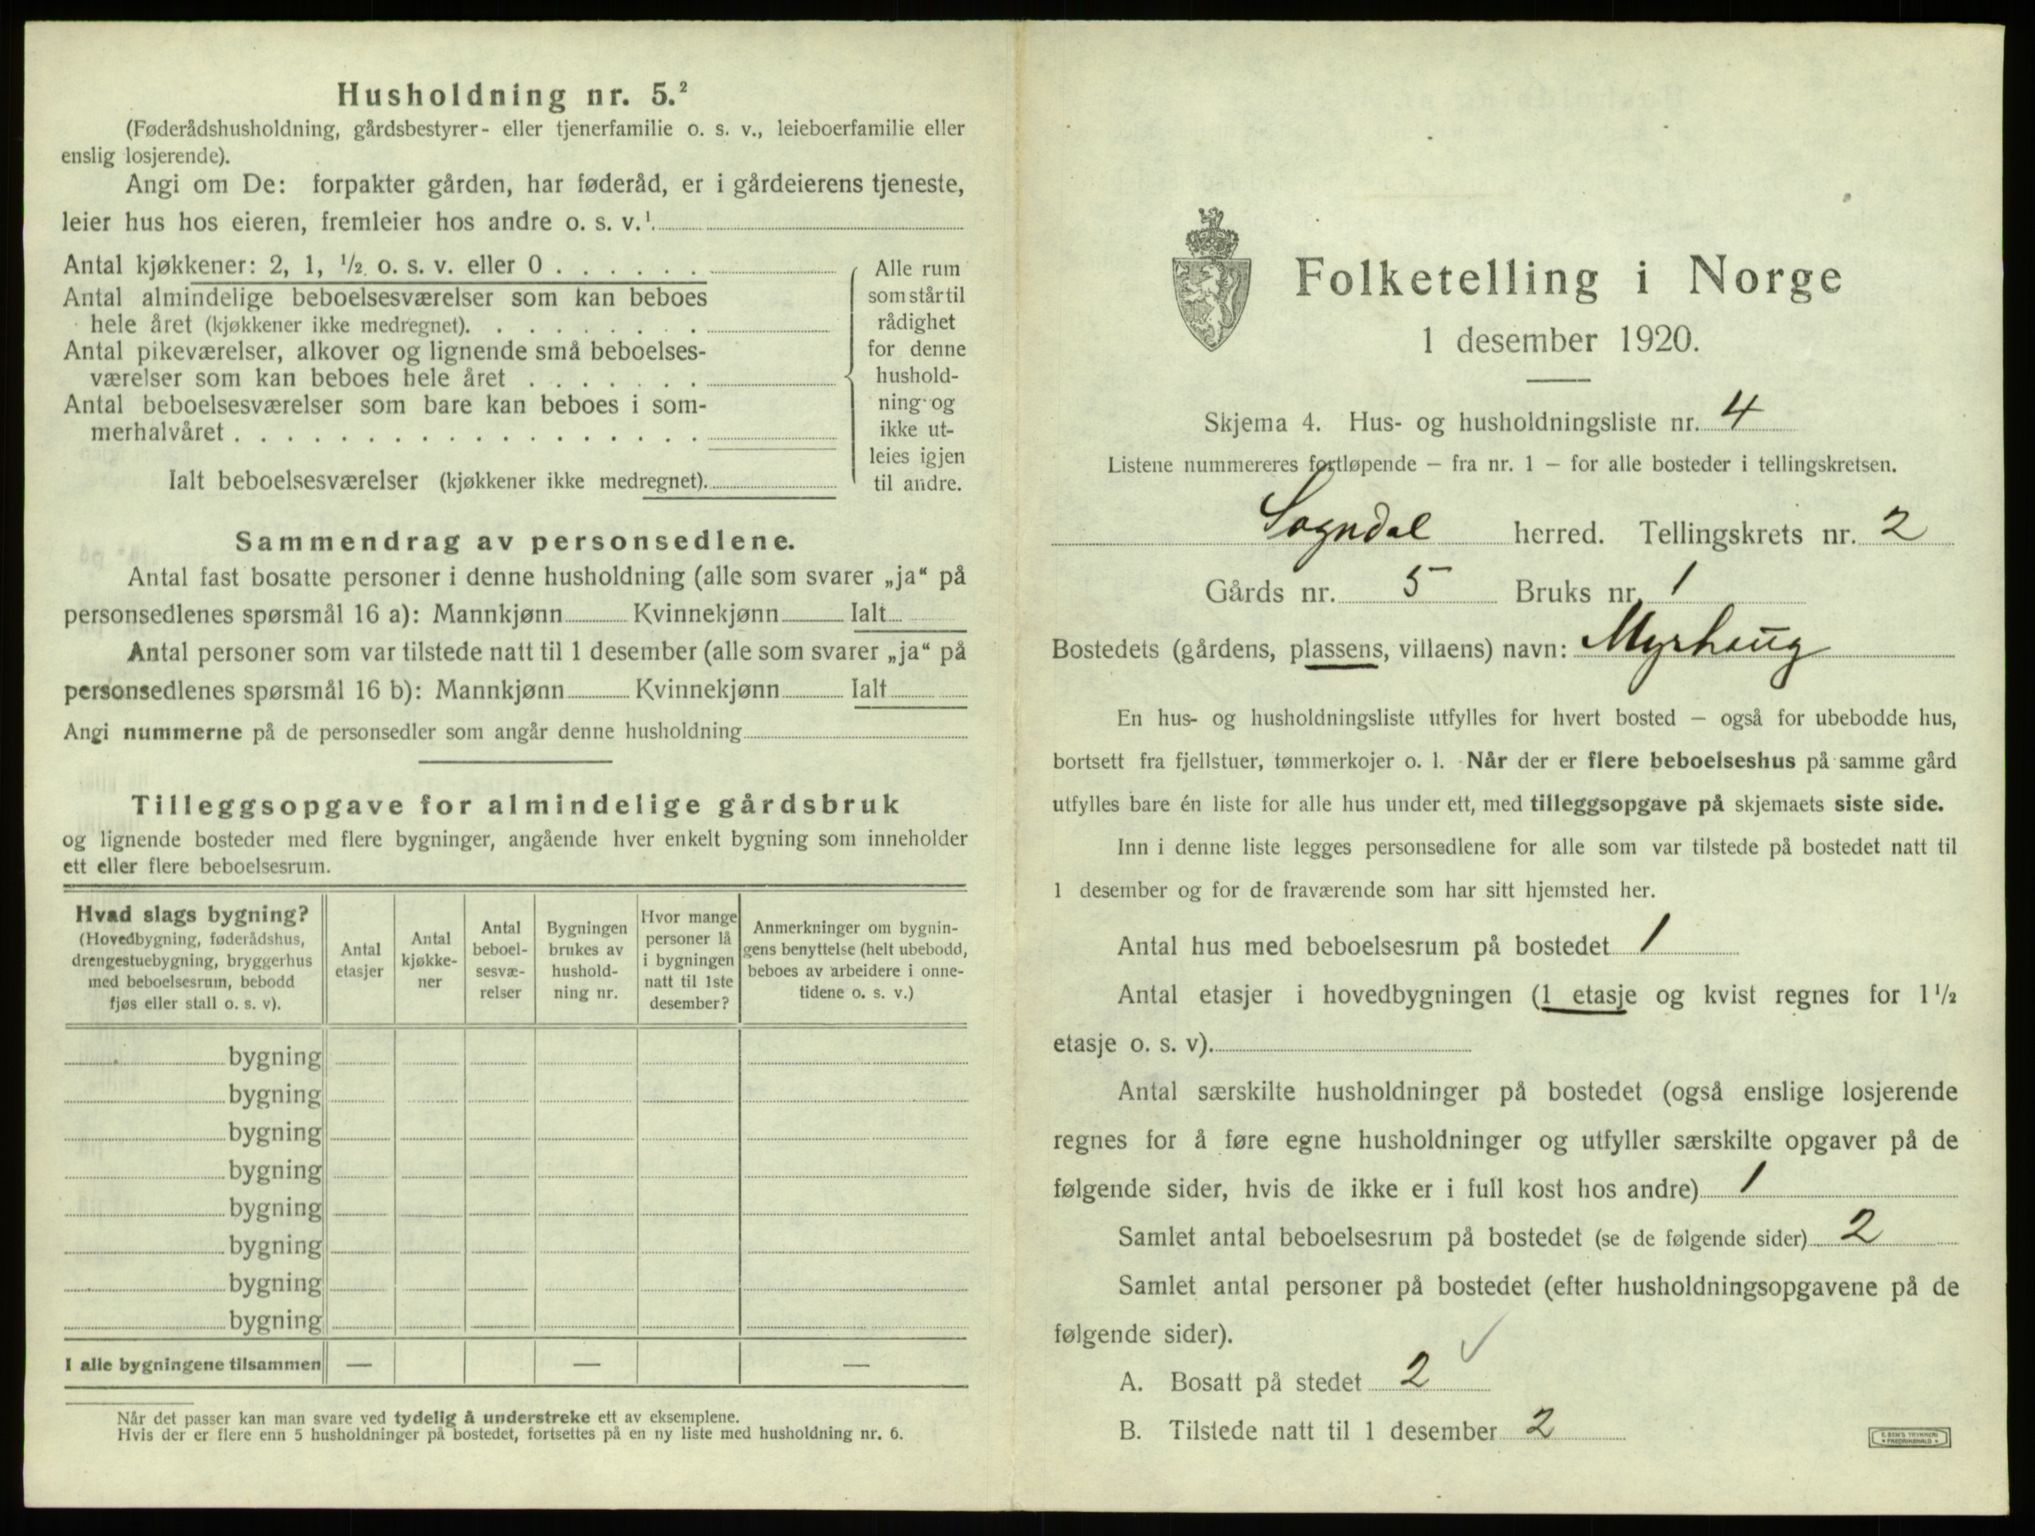 Husholdning nr. 5.²
(Føderådshusholdning, gårdsbestyrer- eller tjenerfamilie o. s. v., leieboerfamilie eller
enslig losjerende).
Angi om De: forpakter gården, har føderåd, er i gårdeierens tjeneste,
leier hus hos eieren, fremleier hos andre o. s. v.¹
Antal kjøkkener: 2, 1, ½ o. s. v. eller 0 . . . . . .
Antal almindelige beboelsesværelser som kan beboes
hele året (kjøkkener ikke medregnet). . . . . . . . .
Antal pikeværelser, alkover og lignende små beboelses-
værelser som kan beboes hele året . . . . . . .
Antal beboelsesværelser som bare kan beboes i som-
merhalvåret . . . . . . . . . . . . . . . . . .
Ialt beboelsesværelser (kjøkkener ikke medregnet).
Alle rum
som står til
rådighet
for denne
hushold-
ning og
ikke ut-
leies igjen
til andre.
Sammendrag av personsedlene.
Antal fast bosatte personer i denne husholdning (alle som svarer „ja“ på
personsedlenes spørsmål 16 a): Mannkjønn Kvinnekjønn Ialt
Antal personer som var tilstede natt til 1 desember (alle som svarer „ja“ på
personsedlenes spørsmål 16 b): Mannkjønn Kvinnekjønn Ialt
Angi nummerne på de personsedler som angår denne husholdning
Tilleggsopgave for almindelige gårdsbruk
og lignende bosteder med flere bygninger, angående hver enkelt bygning som inneholder
ett eller flere beboelsesrum.
Hvad slags bygning?
(Hovedbygning, føderådshus,
drengestuebygning, bryggerhus
med beboelsesrum, bebodd
fjøs eller stall o. s. v).
Antal
etasjer
Antal
kjøkke-
ner
Antal
beboel-
sesvæ-
relser
Bygningen
brukes av
hushold-
ning nr.
Hvor mange
personer lå
i bygningen
natt til 1ste
desember?
Anmerkninger om bygnin-
gens benyttelse (helt ubebodd,
beboes av arbeidere i onne-
tidene o. s. v.)
bygning
bygning
bygning
bygning
bygning
bygning
bygning
bygning
I alle bygningene tilsammen — — —
Når det passer kan man svare ved tydelig å understreke ett av eksemplene.
Hvis der er flere enn 5 husholdninger på bostedet, fortsettes på en ny liste med husholdning nr. 6.
Folketelling i Norge
1 desember 1920.
Skjema 4. Hus- og husholdningsliste nr. 4
Listene nummereres fortløpende – fra nr. 1 – for alle bosteder i tellingskretsen.
Sogndal herred. Tellingskrets nr. 2
Gårds nr. 5 Bruks nr. 1
Bostedets (gårdens, plassens, villaens) navn: Myrhaug
En hus- og husholdningsliste utfylles for hvert bosted – også for ubebodde hus,
bortsett fra fjellstuer, tømmerkojer o. l. Når der er flere beboelseshus på samme gård
utfylles bare én liste for alle hus under ett, med tilleggsopgave på skjemaets siste side.
Inn i denne liste legges personsedlene for alle som var tilstede på bostedet natt til
1 desember og for de fraværende som har sitt hjemsted her.
Antal hus med beboelsesrum på bostedet 1
Antal etasjer i hovedbygningen (1 etasje og kvist regnes for 1½
etasje o. s. v).
Antal særskilte husholdninger på bostedet (også enslige losjerende
regnes for å føre egne husholdninger og utfyller særskilte opgaver på de
følgende sider, hvis de ikke er i full kost hos andre) 1
Samlet antal beboelsesrum på bostedet (se de følgende sider) 2
Samlet antal personer på bostedet (efter husholdningsopgavene på de
følgende sider).
A. Bosatt på stedet 2
B. Tilstede natt til 1 desember 2